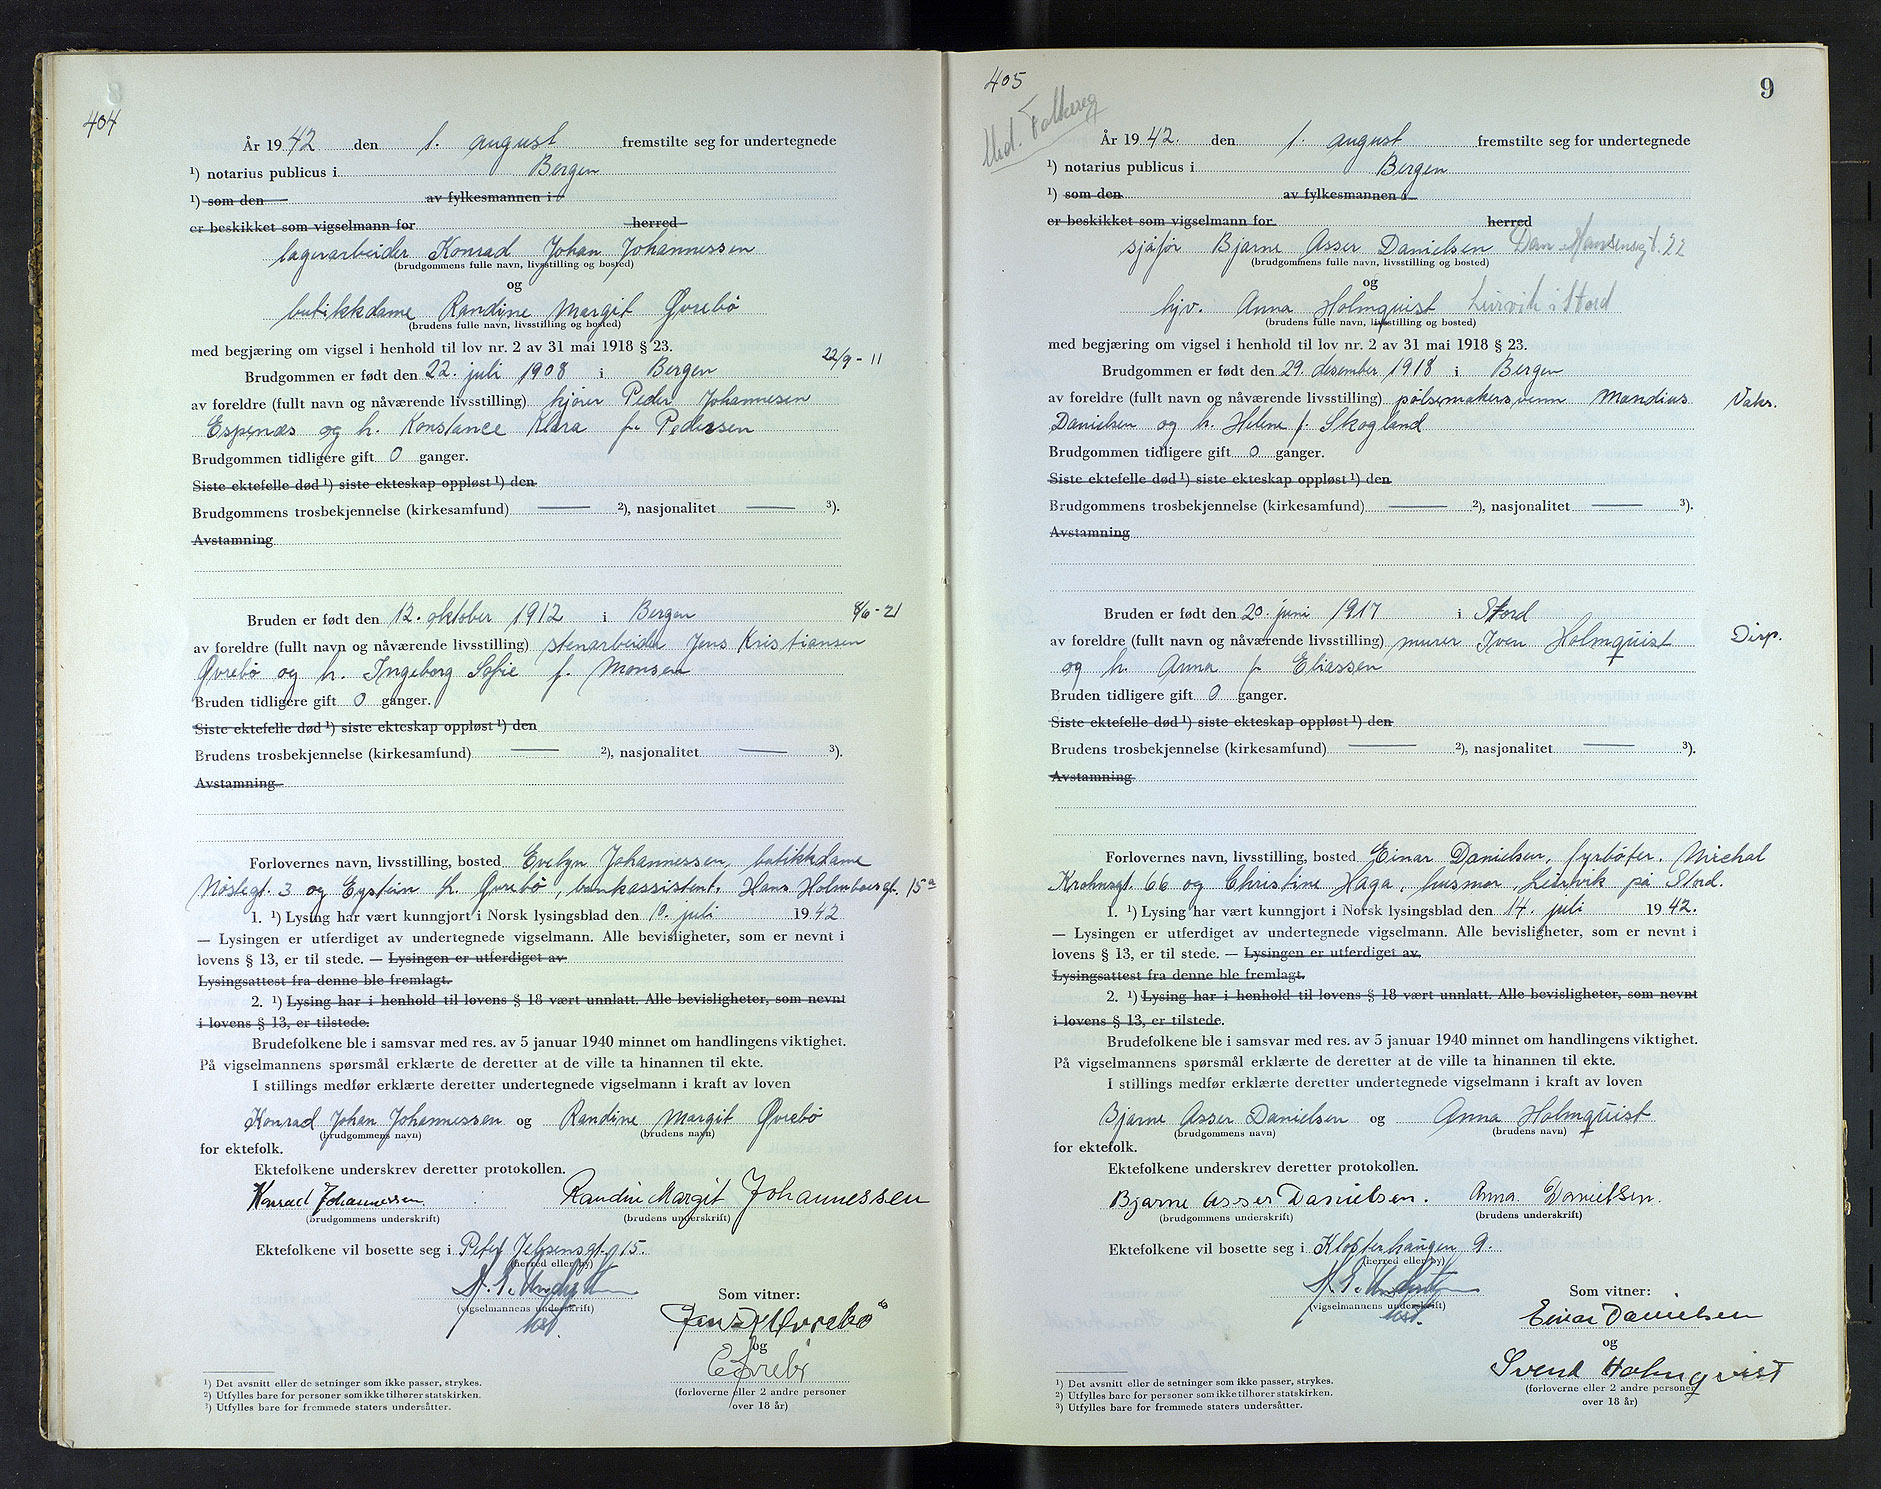 404
År 19 42 den 1. august fremstilte seg for undertegnede
¹) notarius publicus i Bergen
¹) som den av fylkesmannen i
er beskikket som vigselmann for herred
lagerarbeider Konrad Johan Johannessen
(brudgommens fulle navn, livsstilling og bosted)
og
butikkdame Randine Margit Øvrebö
(brudens fulle navn, livsstilling og bosted)
med begjæring om vigsel i henhold til lov nr. 2 av 31 mai 1918 § 23.
22/9 - 11
Brudgommen er født den 22. juli 1908 i Bergen
av foreldre (fullt navn og nåværende livsstilling) kjører Peder Johannesen
Espenæs og h. Konstance Klara f. Pedersen
Brudgommen tidligere gift 0 ganger.
Siste ektefelle død ¹) siste ekteskap oppløst ¹) den
Brudgommens trosbekjennelse (kirkesamfund) — ²), nasjonalitet — ³).
Avstamning
Bruden er født den 12. oktober 1912 i Bergen 8/6 - 21
av foreldre (fullt navn og nåværende livsstilling) stenarbeider Jens Kristiansen
Øvrebö og h. Ingeborg Sofie f. Monsen
Bruden tidligere gift 0 ganger.
Siste ektefelle død ¹) siste ekteskap oppløst ¹) den
Brudens trosbekjennelse (kirkesamfund) — ²), nasjonalitet — ³).
Avstamning
Forlovernes navn, livsstilling, bosted Evelyn Johannessen, butikkdame
Nöstegt. 3 og Eystein K. Øvrebö, bankassistent, Hans Holmboesgt. 15ª
1. ¹) Lysing har vært kunngjort i Norsk lysingsblad den 10. juli 19 42
— Lysingen er utferdiget av undertegnede vigselmann. Alle bevisligheter, som er nevnt i
lovens § 13, er til stede. — Lysingen er utferdiget av
Lysingsattest fra denne ble fremlagt.
2. ¹) Lysing har i henhold til lovens § 18 vært unnlatt. Alle bevisligheter, som nevnt
i lovens § 13, er tilstede.
Brudefolkene ble i samsvar med res. av 5 januar 1940 minnet om handlingens viktighet.
På vigselmannens spørsmål erklærte de deretter at de ville ta hinannen til ekte.
I stillings medfør erklærte deretter undertegnede vigselmann i kraft av loven
Konrad Johan Johannessen og Randine Margit Øvrebö
(brudgommens navn) (brudens navn)
for ektefolk.
Ektefolkene underskrev deretter protokollen.
Konrad Johannessen. Randine Margit Johannessen
(brudgommens underskrift) (brudens underskrift)
Ektefolkene vil bosette seg i Peter Jebsensgt. 15.
(herred eller by)
(vigselmannens underskrift)
Som vitner:
og
E Øvrebö
(forloverne eller 2 andre personer
over 18 år)
¹) Det avsnitt eller de setninger som ikke passer, strykes.
²) Utfylles bare for personer som ikke tilhører statskirken.
³) Utfylles bare for fremmede staters undersåtter.
405
9
Med. Folkereg
År 19 42. den 1. august fremstilte seg for undertegnede
¹) notarius publicus i Bergen
¹) som den av fylkesmannen i
er beskikket som vigselmann for herred
sjåfør Bjarne Asser Danielsen
(brudgommens fulle navn, livsstilling og bosted)
og
hjv. Anna Holmquist Leirvik i Stord
(brudens fulle navn, livsstilling og bosted)
med begjæring om vigsel i henhold til lov nr. 2 av 31 mai 1918 § 23.
Brudgommen er født den 29. desember 1918 i Bergen
av foreldre (fullt navn og nåværende livsstilling) pölsemakersvenn Mandius Vaks.
Danielsen og h. Helene f. Skogland
Brudgommen tidligere gift 0 ganger.
Siste ektefelle død ¹) siste ekteskap oppløst ¹) den
Brudgommens trosbekjennelse (kirkesamfund) — ²), nasjonalitet — ³).
Avstamning
Bruden er født den 20. juni 1917 i Stord
av foreldre (fullt navn og nåværende livsstilling) murer Iver Holmquist Disp.
og h. Anna f. Eliassen
Bruden tidligere gift 0 ganger.
Siste ektefelle død ¹) siste ekteskap oppløst ¹) den
Brudens trosbekjennelse (kirkesamfund) — ²), nasjonalitet — ³).
Avstamning
Forlovernes navn, livsstilling, bosted Einar Danielsen, fyrböter. Michal
Krohnsgt. 66 og Christine Haga, husmor, Leirvik på Stord.
1. ¹) Lysing har vært kunngjort i Norsk lysingsblad den 14. juli 19 42.
— Lysingen er utferdiget av undertegnede vigselmann. Alle bevisligheter, som er nevnt i
lovens § 13, er til stede. — Lysingen er utferdiget av
Lysingsattest fra denne ble fremlagt.
2. ¹) Lysing har i henhold til lovens § 18 vært unnlatt. Alle bevisligheter, som nevnt
i lovens § 13, er tilstede.
Brudefolkene ble i samsvar med res. av 5 januar 1940 minnet om handlingens viktighet.
På vigselmannens spørsmål erklærte de deretter at de ville ta hinannen til ekte.
I stillings medfør erklærte deretter undertegnede vigselmann i kraft av loven
Bjarne Asser Danielsen og Anna Holmquist
(brudgommens navn) (brudens navn)
for ektefolk.
Ektefolkene underskrev deretter protokollen.
Bjarne Asser Danielsen. Anna Danielsen.
(brudgommens underskrift) (brudens underskrift)
Ektefolkene vil bosette seg i Klosterhaugen 9.
(herred eller by)
(vigselmannens underskrift)
Som vitner:
Einar Danielsen
og
Svend Holmqvist
(forloverne eller 2 andre personer
over 18 år)
¹) Det avsnitt eller de setninger som ikke passer, strykes.
²) Utfylles bare for personer som ikke tilhører statskirken.
³) Utfylles bare for fremmede staters undersåtter.